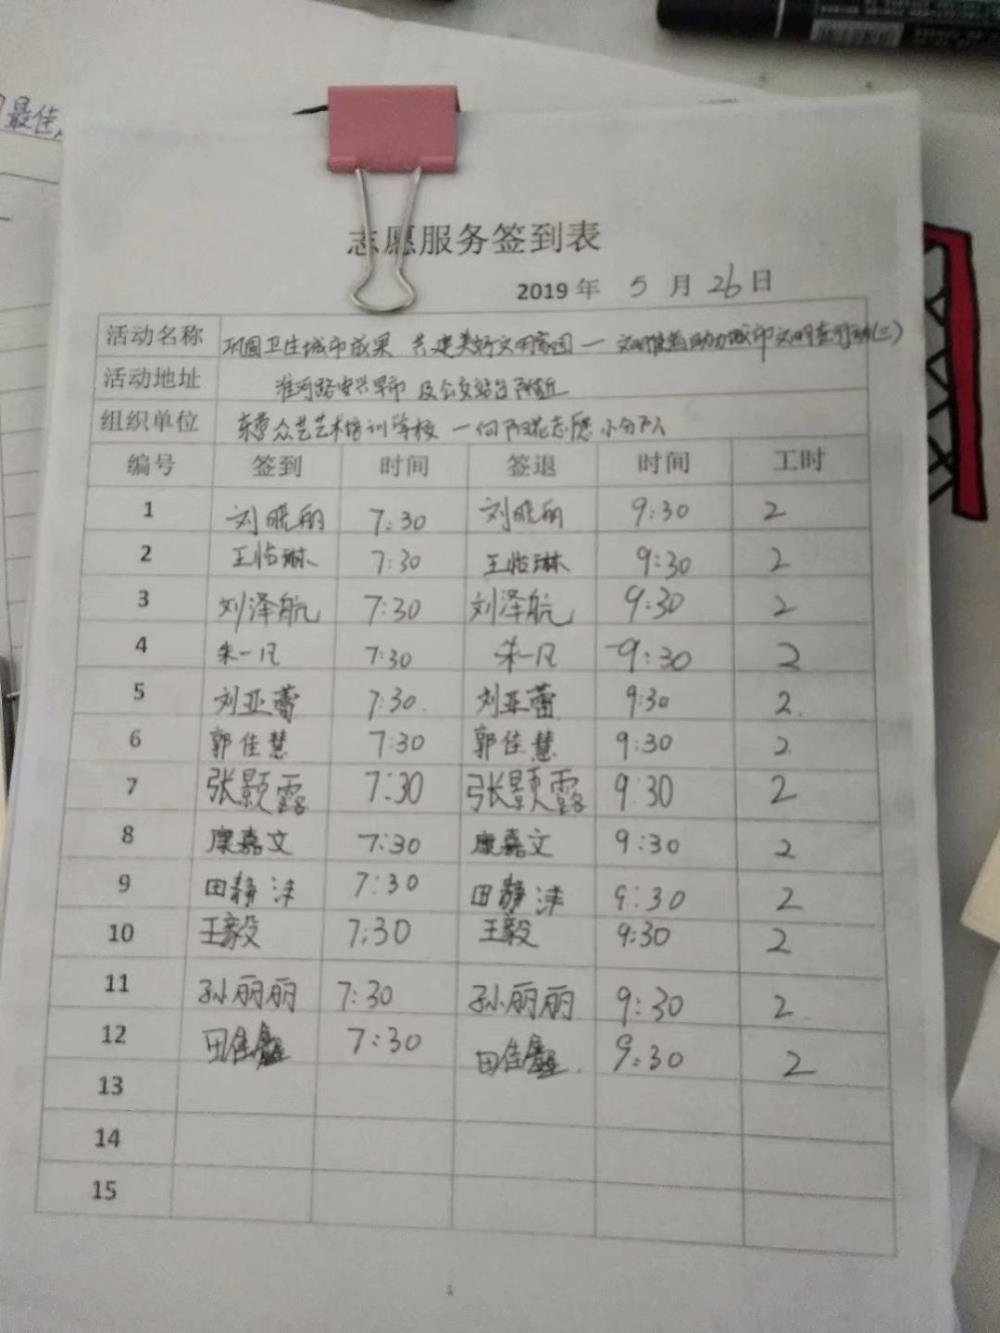 最佳
志愿服务签到表
2019 年 5 月 26 日
活动名称 巩固卫生城市成果 共建美好文明家园 — 助力城市文明 (三)
活动地址 淮河路 早市 及公交站台附近
组织单位 东营众艺艺术培训学校 — 向阳花志愿小分队
编号 签到 时间 签退 时间 工时
1 刘晓丽 7:30 刘晓丽 9:30 2
2 王怡琳 7:30 王怡琳 9:30 2
3 刘泽航 7:30 刘泽航 9:30 2
4 朱一凡 7:30 朱一凡 9:30 2
5 刘亚蕾 7:30 刘亚蕾 9:30 2
6 郭佳慧 7:30 郭佳慧 9:30 2
7 张颢露 7:30 张颢露 9:30 2
8 康嘉文 7:30 康嘉文 9:30 2
9 田静沣 7:30 田静沣 9:30 2
10 王毅 7:30 王毅 9:30 2
11 孙丽丽 7:30 孙丽丽 9:30 2
12 田佳鑫 7:30 田佳鑫 9:30 2
13
14
15
1